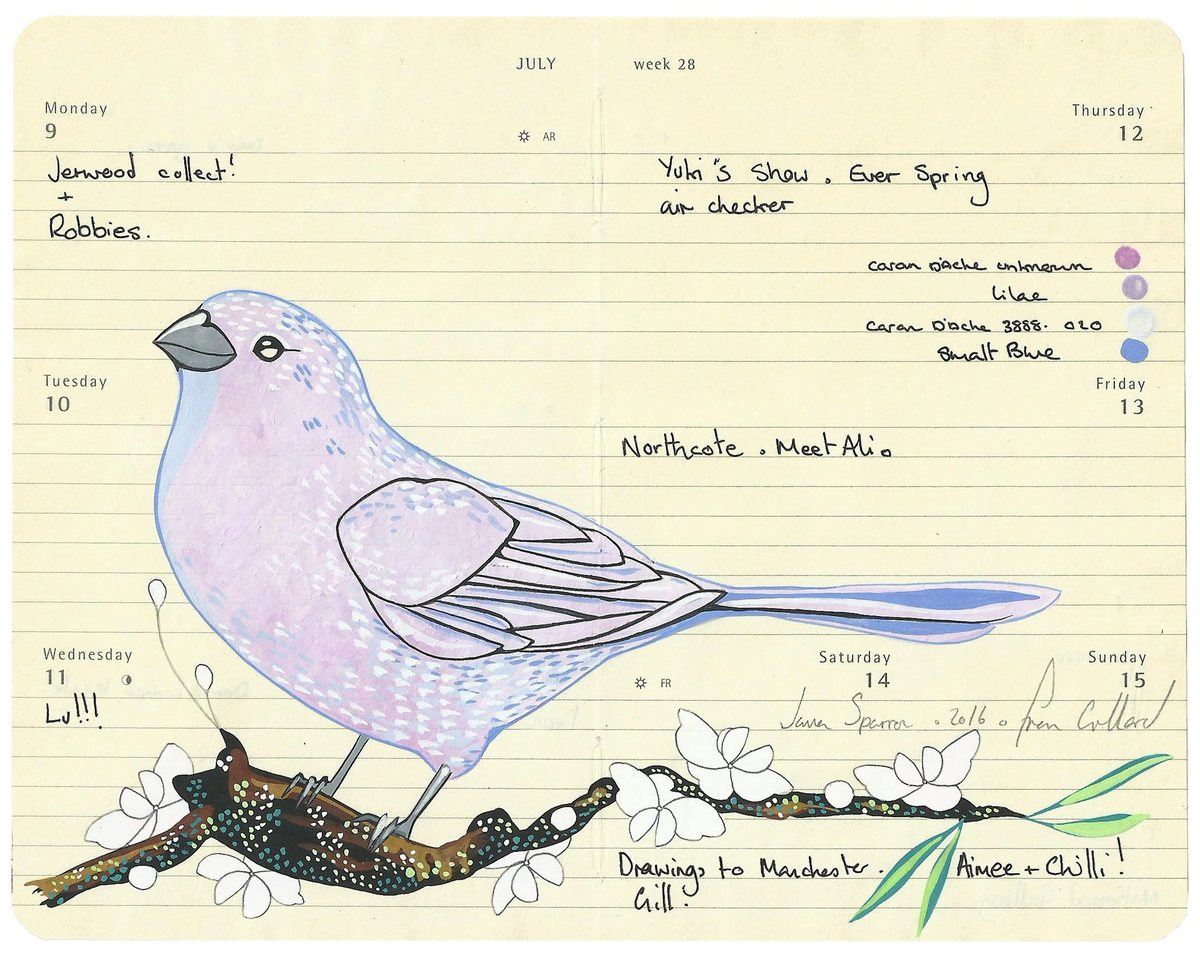 JULY
week 28
Monday
9
AR
Jerwood collect!
+
Robbies.
Tuesday
10
Wednesday
11
Lu!!!
Thursday
12
Yuki's Show. Ever Spring
air checker
caran D'Ache unknown
lilac
caran D'Ache 3888. 020
Smalt Blue
Friday
13
Northcote. Meet Ali.
FR
Saturday
14
Sunday
15
Java Sparrow. 2016. Fran Collard
Drawings to Manchester.
Gill!
Aimee + Chilli!